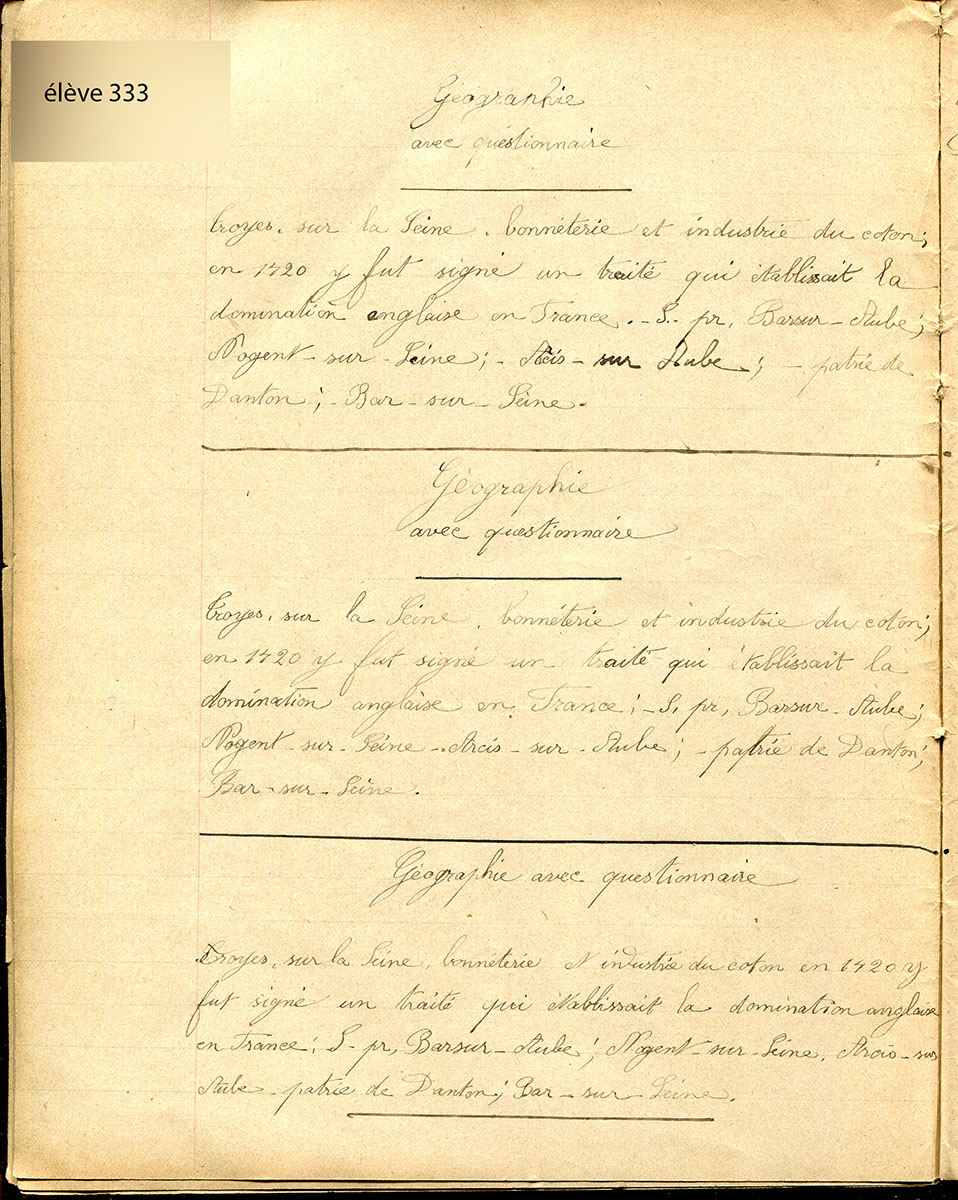 élève 333
Géographie
avec questionnaire
Troyes, sur la Seine, bonnéterie et industrie du coton;
en 1420 y fut signé un traité qui établissait la
domination anglaise en France. - S. pr, Barsur - Aube;
Nogent - sur - Seine; - Arcis - sur Aube; - patrie de
Danton; - Bar - sur - Seine.
Géographie
avec questionnaire
Troyes, sur la Seine, bonnéterie et industrie du coton;
en 1420 y fut signé un traité qui établissait la
domination anglaise en France; - S. pr, Barsur - Aube;
Nogent - sur - Seine - Arcis - sur - Aube; - patrie de Danton;
Bar - sur - Seine.
Géographie avec questionnaire
Troyes, sur la Seine, bonnéterie et industrie du coton en 1420 y
fut signé un traité qui établissait la domination anglaise
en France; S - pr, Barsur - Aube; Nogent - sur - Seine, Arcis - sur
Aube - patrie de Danton; Bar - sur - Seine.